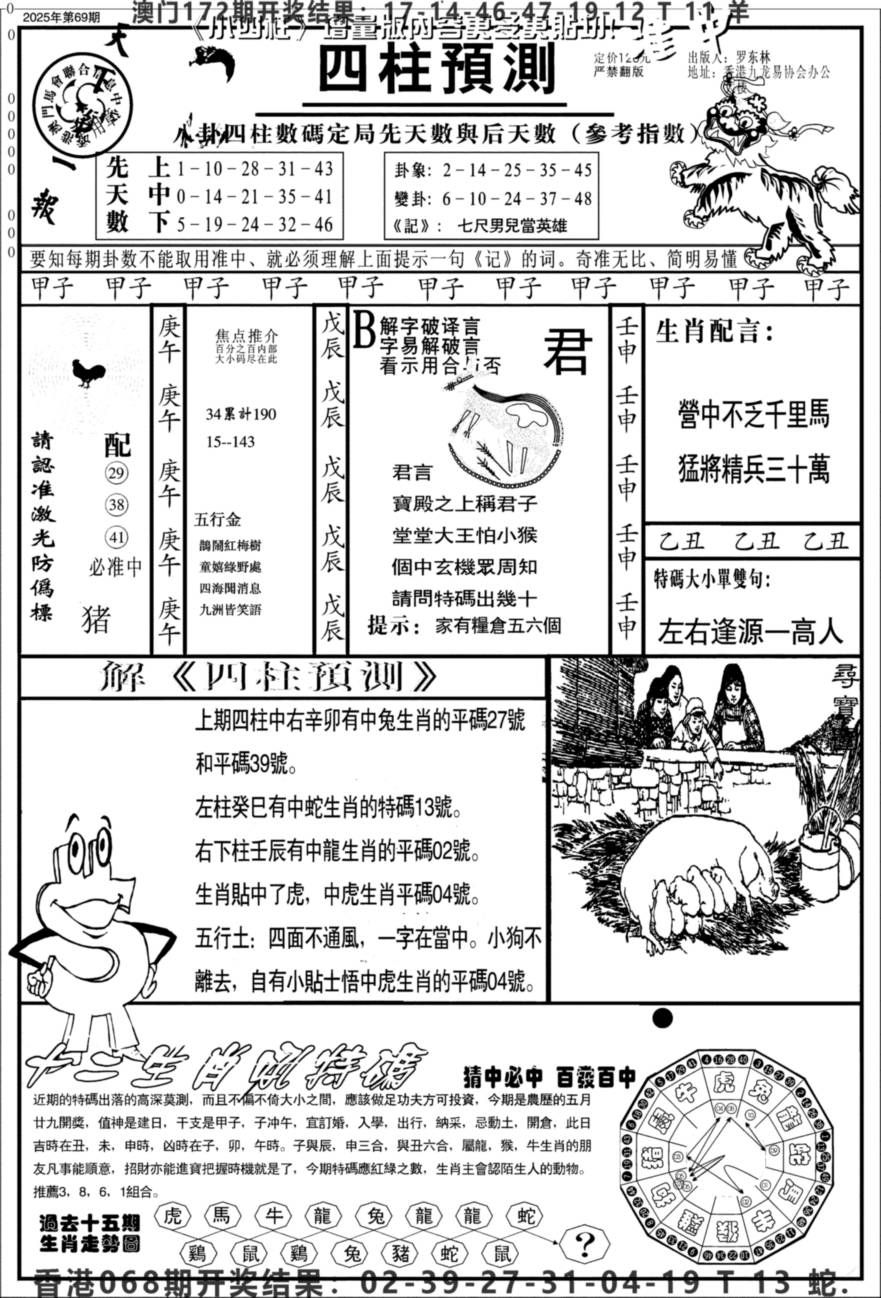 澳门172期开奖结果：17-14-46-47-19-12 T 11 羊
2025年第69期
四柱預測
定价128元
严禁翻版
出版人：罗东林
地址：香港九龙易协会办公
天
一
報
八卦四柱數碼定局先天數與后天數（參考指數）
先天數
上 1-10-28-31-43
中 0-14-21-35-41
下 5-19-24-32-46
卦象：2-14-25-35-45
變卦：6-10-24-37-48
《記》： 七尺男兒當英雄
要知每期卦数不能取用准中、就必须理解上面提示一句《记》的词。奇准无比、简明易懂
甲子 甲子 甲子 甲子 甲子 甲子 甲子 甲子 甲子 甲子 甲子
請認准激光防僞標
配
29
38
41
必准中
猪
庚午 庚午 庚午 庚午 庚午
焦点推介
百分之百内部
大小码尽在此
34累計190
15--143
五行金
鵲鬧紅梅樹
童嬉綠野處
四海聞消息
九洲皆笑語
戊辰 戊辰 戊辰 戊辰 戊辰
B
解字破译言
字易解破言
看示用合与否
君
君言
寶殿之上稱君子
堂堂大王怕小猴
個中玄機眾周知
請問特碼出幾十
提示： 家有糧倉五六個
壬申 壬申 壬申 壬申 壬申
生肖配言：
營中不乏千里馬
猛將精兵三十萬
乙丑 乙丑 乙丑
特碼大小單雙句：
左右逢源一高人
解《四柱預測》
上期四柱中右辛卯有中兔生肖的平碼27號
和平碼39號。
左柱癸巳有中蛇生肖的特碼13號。
右下柱壬辰有中龍生肖的平碼02號。
生肖貼中了虎，中虎生肖平碼04號。
五行土：四面不通風，一字在當中。小狗不
離去，自有小貼士悟中虎生肖的平碼04號。
尋寶圖
猜中必中 百發百中
近期的特碼出落的高深莫測，而且不偏不倚大小之間，應該做足功夫方可投資，今期是農歷的五月
廿九開獎，值神是建日，干支是甲子，子冲午，宜訂婚，入學，出行，納采，忌動土，開倉，此日
吉時在丑，未，申時，凶時在子，卯，午時。子與辰，申三合，與丑六合，屬龍，猴，牛生肖的朋
友凡事能順意，招財亦能進寶把握時機就是了，今期特碼應紅綠之數，生肖主會認陌生人的動物。
推薦3，8，6，1組合。
過去十五期
生肖走勢圖
虎 馬 牛 龍 兔 龍 龍 蛇
鷄 鼠 鷄 兔 豬 蛇 鼠
?
香港068期开奖结果：02-39-27-31-04-19 T 13 蛇.